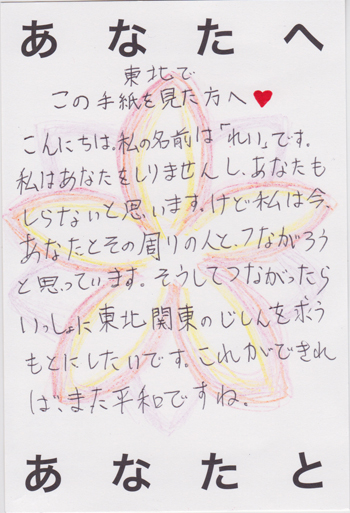 あなたへ
東北で
この手紙を見た方へ♥
こんにちは。私の名前は「れい」です。
私はあなたをしりませんし、あなたも
しらないと思います。けど私は今、
あなたとその周りの人と、つながろう
と思っています。そうしてつながったら
いっしょに東北関東のじしんを求う
もとにしたいです。これができれ
ば、また平和ですね。
あなたと